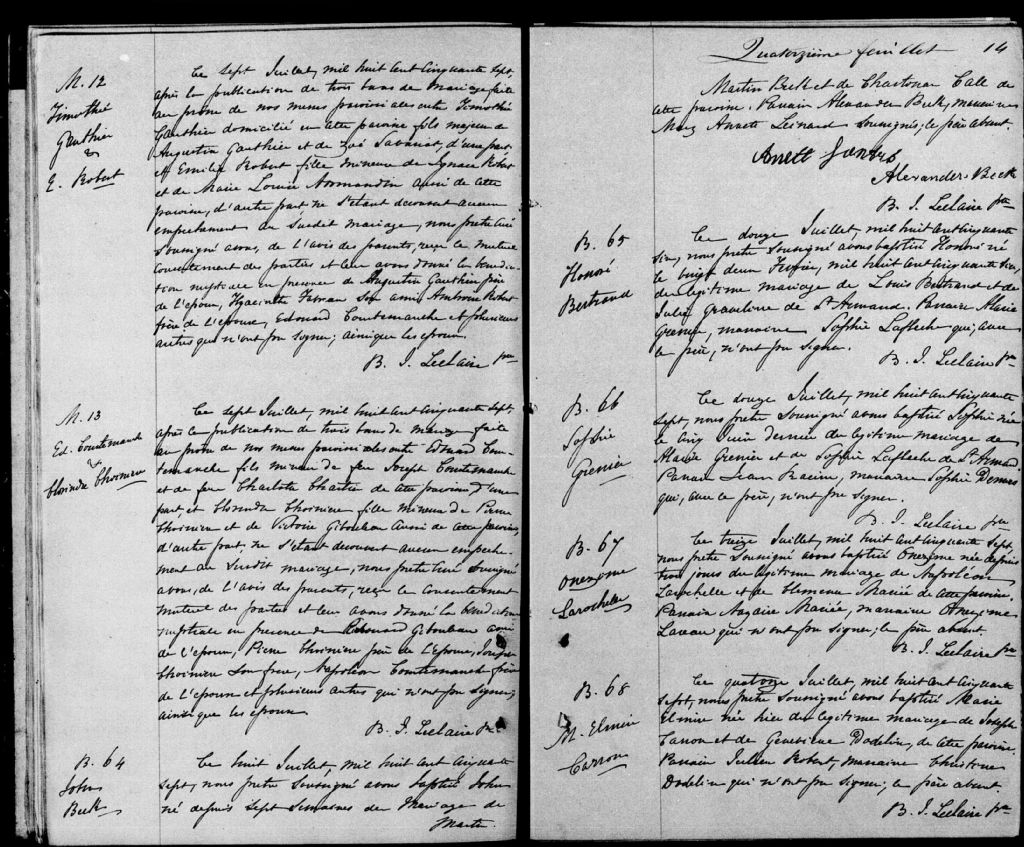 M. 12
Timothé
Gauthier
&
E. Robert
Ce sept Juillet, mil huit cent cinquante sept,
après la publication de trois bans de mariage faite
au prône de nos messes paroissiales entre Timothé
Gauthier domicilié en cette paroisse fils majeur de
Augustin Gauthier et de Zoé Savariat, d'une part
et Emilie Robert fille mineure de Ignace Robert
et de Marie Louise Normandin aussi de cette
paroisse, d'autre part ne s'étant découvert aucun
empechement au susdit mariage, nous prêtre curé
soussigné avons, de l'avis des parents, reçu le mutuel
consentement des parties et leur avons donné la bénédic-
tion nuptiale en présence de Augustin Gauthier père
de l'époux, Hyacinthe son ami Ambroise Robert
frère de l'épouse, Edouard Courtemanche et plusieurs
autres qui n'ont pu signer; ainsi que les époux.
B. J. Leclaire ptre
M. 13
Ed. Courtemanche
&
Clorinde Choinière
Ce sept Juillet, mil huit cent cinquante sept,
après la publication de trois bans de mariage faite
au prône de nos messes paroissiales entre Edouard Cour-
temanche fils mineur de feu Joseph Courtemanche
et de feu Charlotte Chartier de cette paroisse d'une
part, et Clorinde Choinière fille mineure de Pierre
Choinière et de Victoire Gibouleau aussi de cette paroisse,
d'autre part, ne s'étant découvert aucun empeche-
ment au susdit mariage, nous prêtre curé soussigné
avons, de l'avis des parents, reçu le consentement
mutuel des parties et leur avons donné la bénédiction
nuptiale en présence de Edouard Gibouleau ami
de l'époux, Pierre Choinière père de l'épouse, Joseph
Choinière son frère, Napoléon Courtemanche frère
de l'époux et plusieurs autres qui n'ont pu signer,
ainsi que les époux.
B. J. Leclaire Ptre
B. 64
John
Beek
Ce huit Juillet, mil huit cent cinquante
sept, nous prêtre soussigné avons baptisé John
né depuis sept semaines du mariage de
Martin
Quatorzième feuillet 14
Martin Beek et de Charlotte Call de
cette paroisse. Parrain Alexander Beek, marraine
Mary Annett soussignés; le père absent.
Anett
Alexander Beek
B. J. Leclaire ptre
B. 65
Honoré
Bertrand
Ce douze Juillet, mil huit cent cinquante
six, nous prêtre soussigné avons baptisé Honoré né
le vingt deux Février, mil huit cent cinquante six,
du légitime mariage de Louis Bertrand et de
Julie de St Armand. Parrain Marie
Grenier, marraine Sophie Lafleche qui, avec
le père, n'ont pu signer.
B. J. Leclaire Ptre
B. 66
Sophie
Grenier
Ce douze Juillet, mil huit cent cinquante
sept, nous prêtre soussigné avons baptisé Sophie née
le cinq Juin dernier du légitime mariage de
Marie Grenier et de Sophie Lafleche de St Armand
Parrain Jean Racine, marraine Sophie Demers
qui, avec le père, n'ont pu signer.
B. J. Leclaire Ptre
B. 67
Onezyme
Larochelle
Ce treize Juillet, mil huit cent cinquante sept,
nous prêtre soussigné avons baptisé Onezyme née depuis
trois jours du légitime mariage de Napoléon
Larochelle et de Clemence Maciée de cette paroisse.
Parrain Nazaire Maciée, marraine Onezyme
Lavau qui n'ont pu signer; le père absent.
B. J. Leclaire Ptre
B. 68
M. Elmire
Carron
Ce quatorze Juillet, mil huit cent cinquante
sept, nous prêtre soussigné avons baptisé Marie
Elmire née hier du légitime mariage de Joseph
Caron et de Geneviève Dodelin, de cette paroisse.
Parrain Julien Robert, marraine Christine
Dodelin qui n'ont pu signer; le père absent.
B. J. Leclaire Ptre